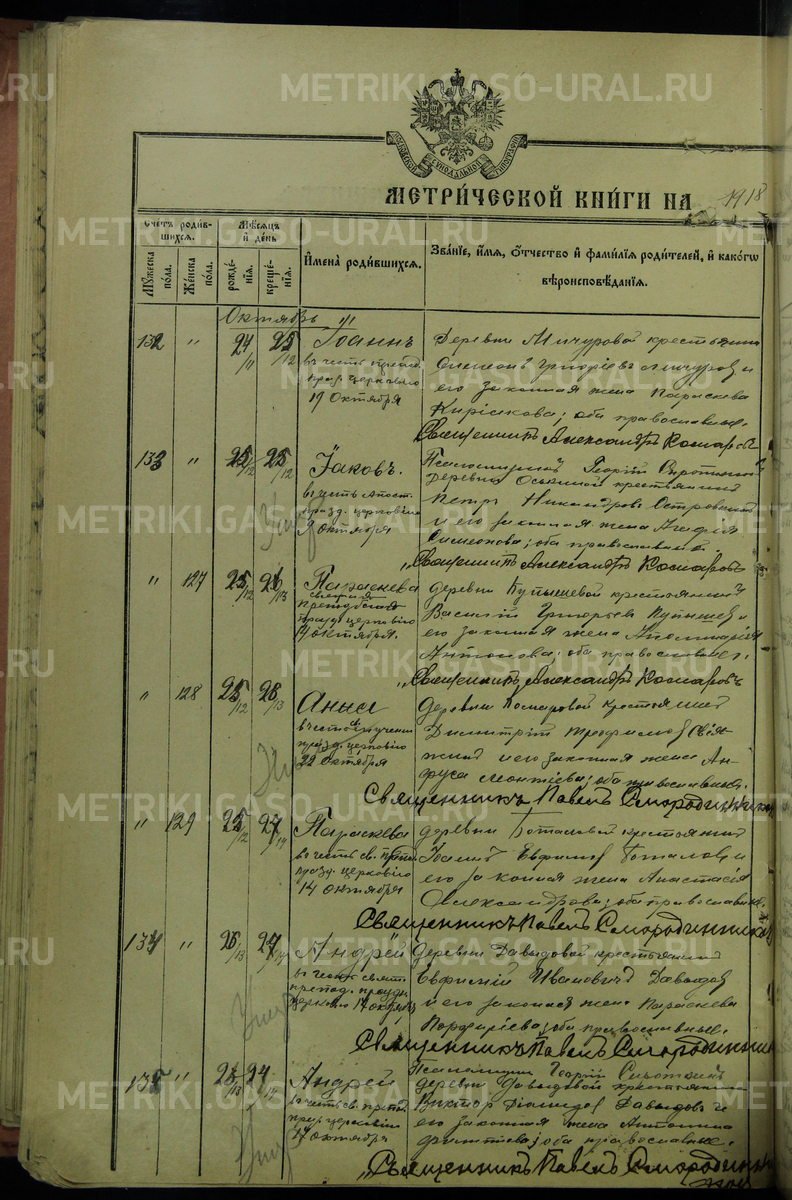 МЕТРИ́ЧЕСКОЙ КНИ́ГИ НА 1918
Сче́тъ роди́вшихся.
Мꙋ́жеска по́ла.
Же́нска по́ла.
Мѣ́сяцъ и́ де́нь
рожде́нїя.
креще́нїя.
И҆мена̀ роди́вшихся.
Зва́нїе, и҆́мя, ѻ҆́тчество и҆ фами́лїя роди́телей, и҆ како́гѡ вѣроисповѣ́данїя.
Октябрь
132 " 24/11 25/12 Іоаннъ
въ честь
празд. церковію
19 Октября
Деревни Мичуровой крестьянин
Симеонъ Григоріевъ Мичуровъ и
его законная жена Параскева
Кирикова; оба православные.
Священникъ Александръ Комаровъ
Псаломщикъ Георгій
133 " 25/12 25/12 Іаковъ.
въ честь Апост.
празд. церковію
9 Октября
Умер
деревни Оськиной крестьянинъ
Петръ Никандровъ
и его законная жена Агафія
Симеонова; оба православные.
Священникъ Александръ Комаровъ
" 127 25/12 26/13 Параскева
празд. церковію
14 октября.
деревни Купышевой крестьянинъ
Василій Григорьевъ Купышевъ и
его законная жена Аполлинарія
Антонова; оба православные.
Священникъ Александръ Комаровъ
" 128 25/12 26/13 Анна
въ честь мученицы
празд. церковію
22 октября
деревни Комаровой крестьянинъ
Димитрій Трофимовъ
и его законная жена Ан-
фуса Леонтіева; оба православные.
Священникъ Павелъ Смородинниковъ
" 129 25/12 27/14 Параскева
въ честь св. преп.
празд. церковію
14 октября
деревни крестьянинъ
Іоаннъ Евфимовъ и
его законная жена Анастасія
Александрова; оба православные.
Священникъ Павелъ Смородинниковъ
134 " 26/13 27/14 Андрей
въ честь свят.
препод. празд.
церковію 17 октября
Умер
деревни Давыдовой крестьянинъ
Евфимій Ивановъ Давыдовъ
и его законная жена Параскева
Порфиріева; оба православные.
Священникъ Павелъ Смородинниковъ
Псаломщикъ Георгій
135 " 26/13 27/14 Андрей
въ честь св. препод.
празд. церковію
17 октября
Умер
деревни Давыдовой крестьянинъ
Викторъ Давыдовъ и
его законная жена Антонина
оба православные.
Священникъ Павелъ Смородинниковъ
METRIKI.GASO-URAL.RU